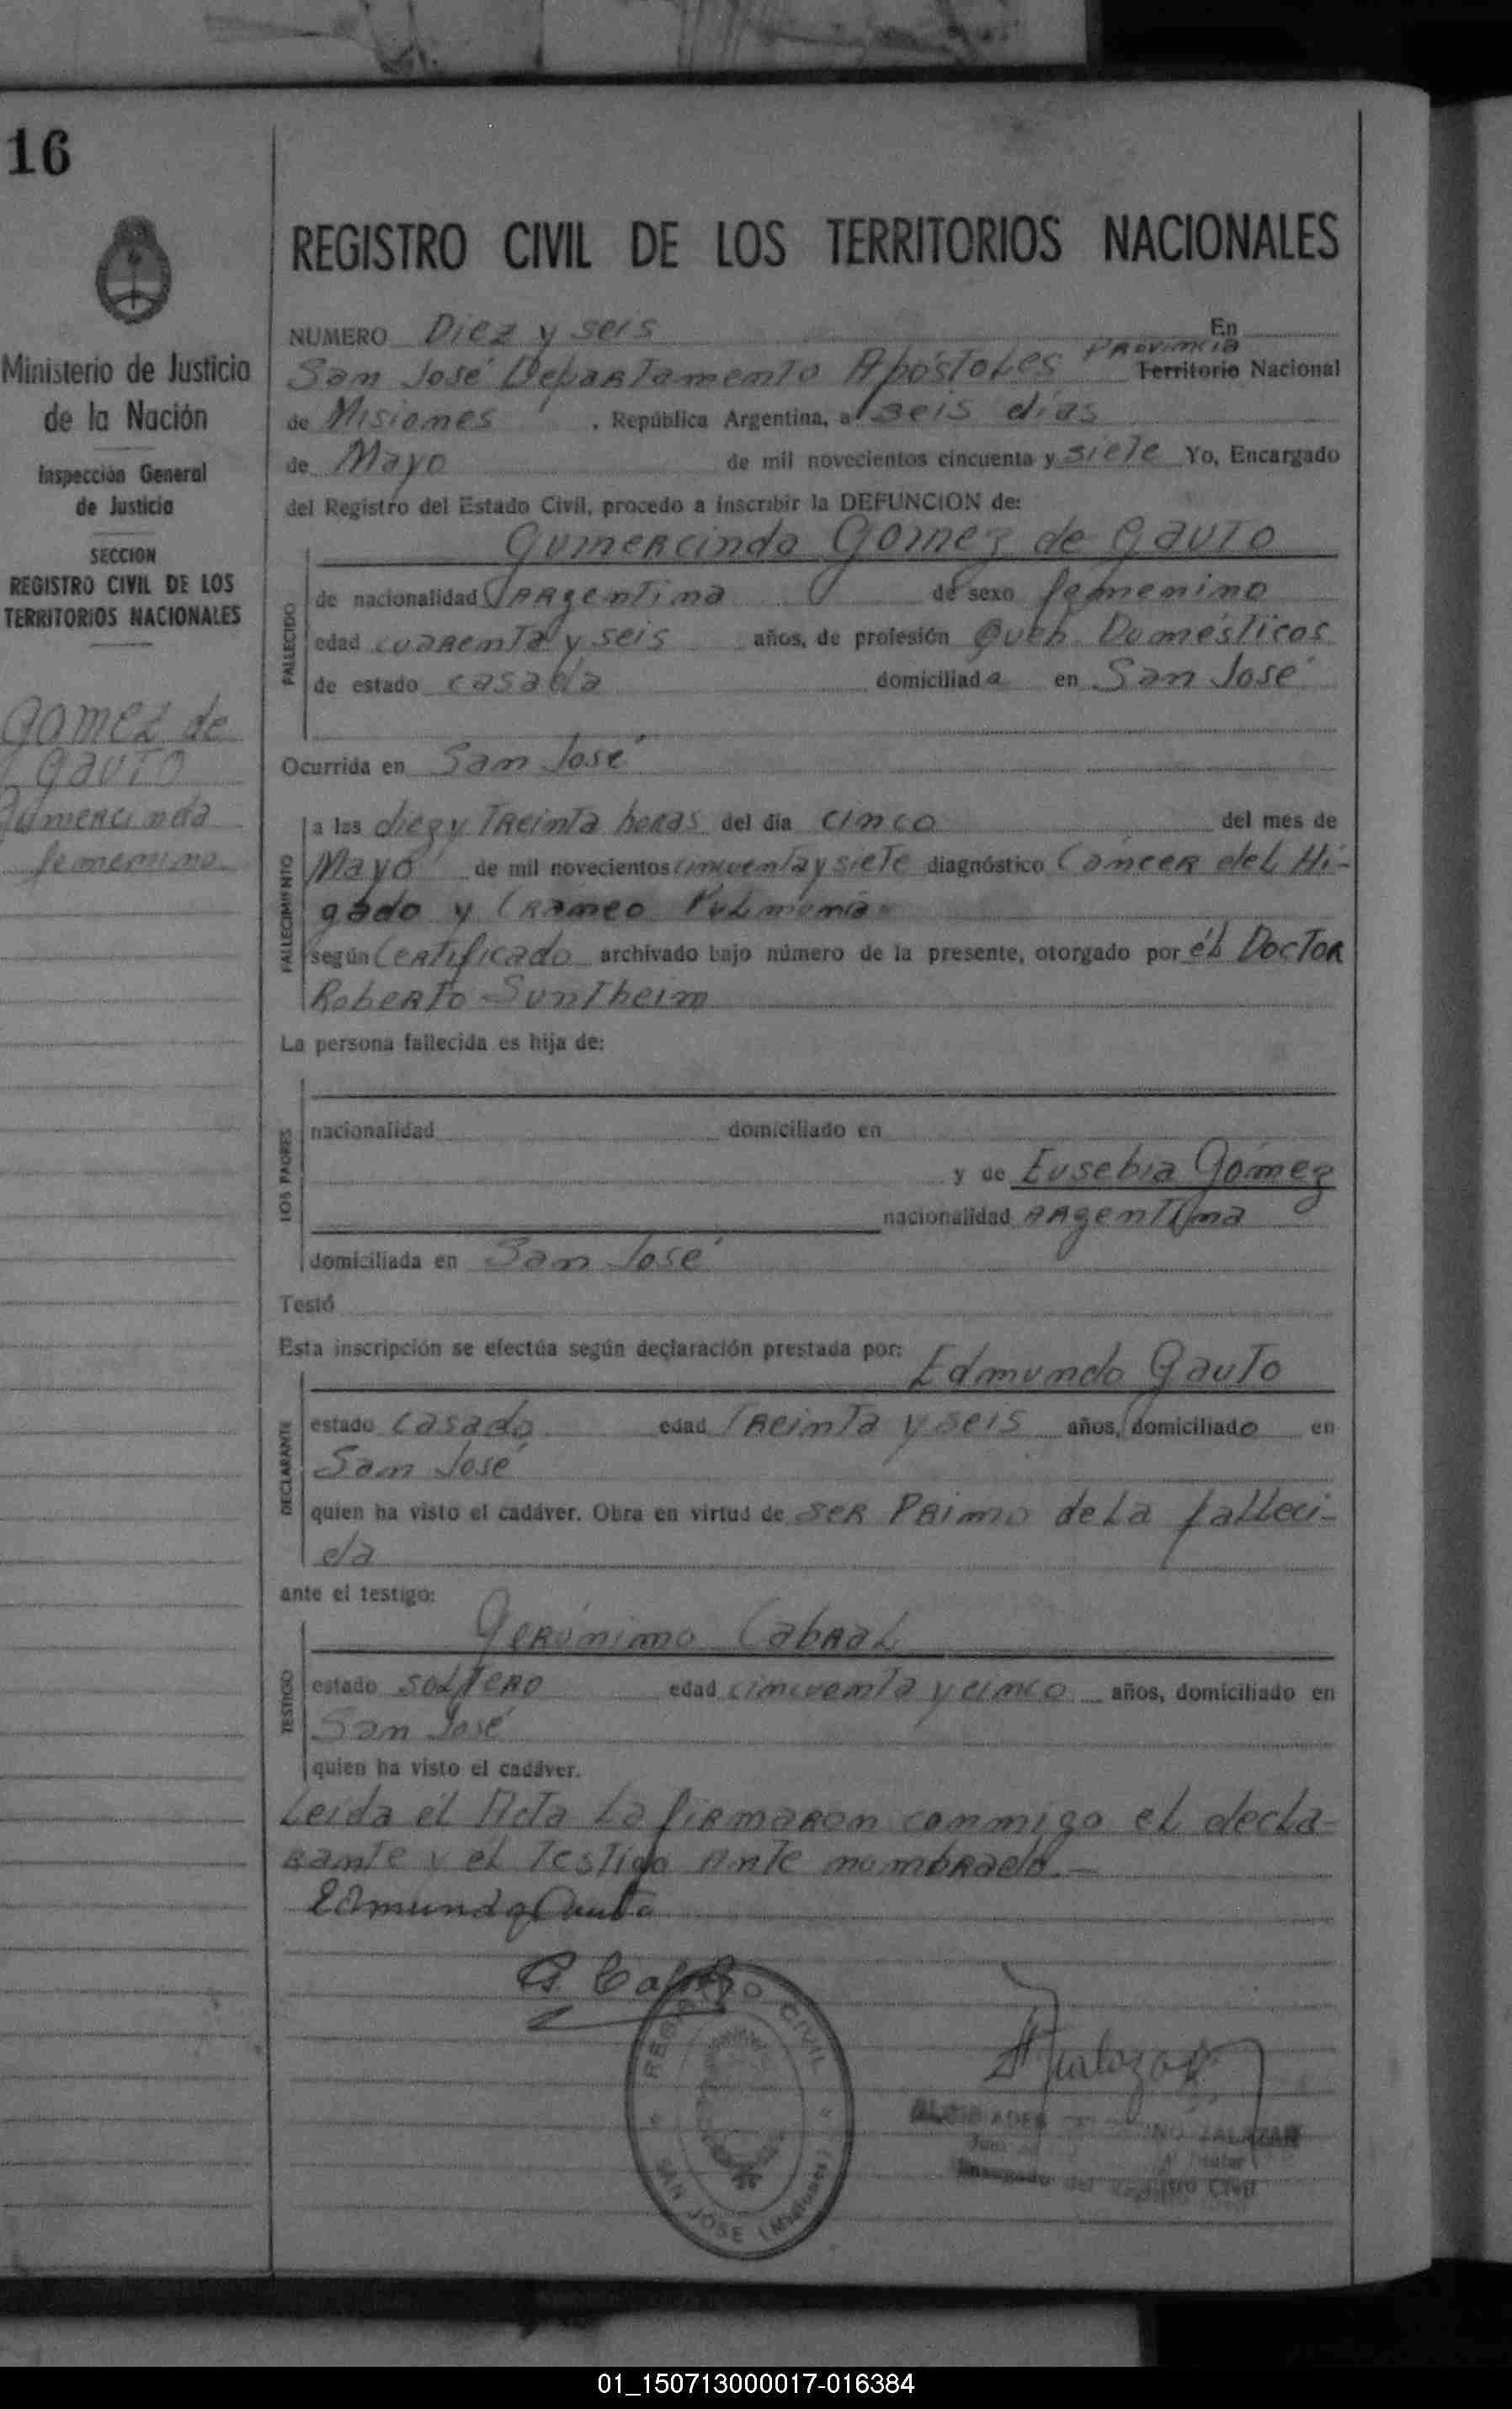 16
Ministerio de Justicia
de la Nación
Inspección General
de Justicia
SECCION
REGISTRO CIVIL DE LOS
TERRITORIOS NACIONALES
Gomez de
Gauto
Gumercinda
femenino
REGISTRO CIVIL DE LOS TERRITORIOS NACIONALES
NUMERO Diez y seis En
San José Departamento Apóstoles Provincia Territorio Nacional
de Misiones , República Argentina, a seis días
de Mayo de mil novecientos cincuenta y siete Yo, Encargado
del Registro del Estado Civil, procedo a inscribir la DEFUNCION de:
Gumercinda Gomez de Gauto
FALLECIDO
de nacionalidad Argentina de sexo femenino
edad cuarenta y seis años, de profesión Queh. Domésticos
de estado casada domiciliada en San José
Ocurrida en San José
FALLECIMIENTO
a las diez y treinta horas del día cinco del mes de
Mayo de mil novecientos cincuenta y siete diagnóstico Cáncer del Hí-
gado y Craneo Pulmonia
según Certificado archivado bajo número de la presente, otorgado por él Doctor
Roberto Suntheim
La persona fallecida es hija de:
LOS PADRES
nacionalidad domiciliado en
y de Eusebia Gómez
nacionalidad Argentina
domiciliada en San José
Testó
Esta inscripción se efectúa según declaración prestada por:
Edmundo Gauto
DECLARANTE
estado casado edad Treinta y seis años, domiciliado en
San José
quien ha visto el cadáver. Obra en virtud de ser Primo de la falleci-
da
ante el testigo:
Gerónimo Cabral
TESTIGO
estado soltero edad cincuenta y cinco años, domiciliado en
San José
quien ha visto el cadáver.
Leida él Acta la firmaron conmigo el decla-
rante y él Testigo Ante nombrado.—
Edmundo Gauto
REGISTRO CIVIL
SAN JOSE (Misiones)
ZALAZAR
Encargado del Registro Civil
01_150713000017-016384